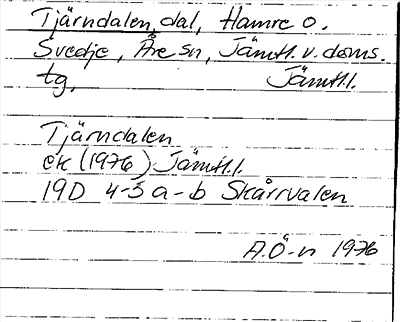 Tjärndalen, dal, Hamre o.
Svedje, Åre sn, Jämtl. v. doms.
tg, Jämtl.l.
Tjärndalen
ek (1976) Jämtl.l.
19D 4-5 a-b Skårrvalen
A.Ö-n 1976